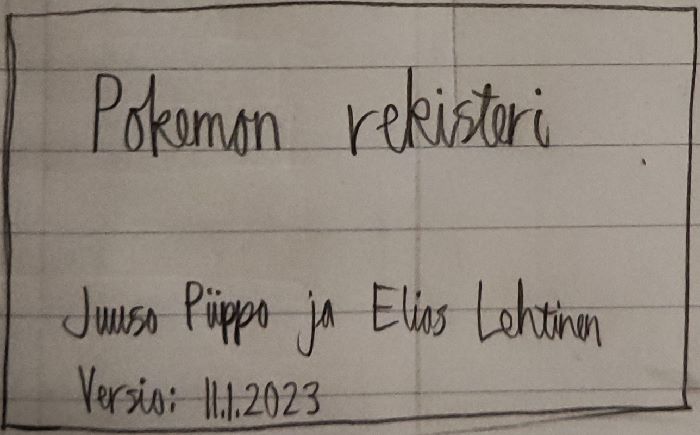 Pokemon rekisteri
Juuso Piippo ja Elias Lehtinen
Versio: 11.1.2023